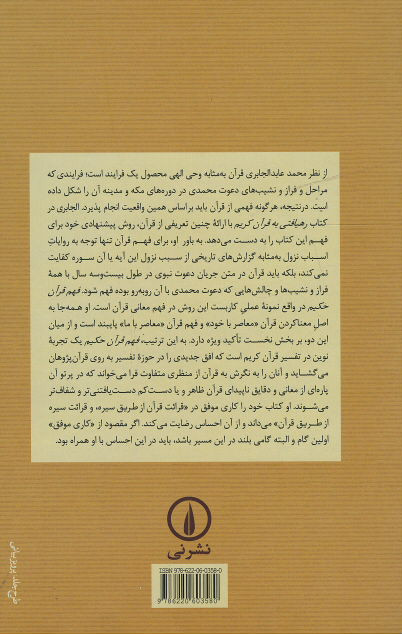 از نظر محمد عابدالجابری قرآن به‌مثابه وحی الهی محصول یک فرایند است؛ فرایندی که
مراحل و فراز و نشیب‌های دعوت محمدی در دوره‌های مکه و مدینه آن را شکل داده
است. درنتیجه، هرگونه فهمی از قرآن باید براساس همین واقعیت انجام پذیرد. الجابری در
کتاب رهیافتی به قرآن کریم با ارائهٔ چنین تعریفی از قرآن، روش پیشنهادی خود برای
فهم این کتاب را به دست می‌دهد. به باور او، برای فهم قرآن تنها توجه به روایات
اسباب نزول به‌مثابه گزارش‌های تاریخی از سبب نزول این آیه یا آن سوره کفایت
نمی‌کند، بلکه باید قرآن در متن جریان دعوت نبوی در طول بیست‌وسه سال با همهٔ
فراز و نشیب‌ها و چالش‌هایی که دعوت محمدی با آن روبه‌رو بوده فهم شود. فهم قرآن
حکیم در واقع نمونهٔ عملیِ کاربست این روش در فهم معانی قرآن است. او همه‌جا به
اصلِ معناکردنِ قرآن «معاصر با خود» و فهم قرآن «معاصر با ما» پایبند است و از میان
این دو، بر بخش نخست تأکید ویژه دارد. به این ترتیب، فهم قرآن حکیم یک تجربهٔ
نوین در تفسیر قرآن کریم است که افق جدیدی را در حوزهٔ تفسیر به روی قرآن‌پژوهان
می‌گشاید و آنان را به نگرش به قرآن از منظری متفاوت فرا می‌خواند که در پرتو آن
پاره‌ای از معانی و دقایق ناپیدای قرآن ظاهر و یا دست‌کم دست‌یافتنی‌تر و شفاف‌تر
می‌شوند. او کتاب خود را کاری موفق در «قرائت قرآن از طریق سیره، و قرائت سیره
از طریق قرآن» می‌داند و از آن احساس رضایت می‌کند. اگر مقصود از «کاری موفق»
اولین گام و البته گامی بلند در این مسیر باشد، باید در این احساس با او همراه بود.
نشر نی
ISBN 978-622-06-0358-0
9 786220 603580
طرح جلد: پرویز بیانی